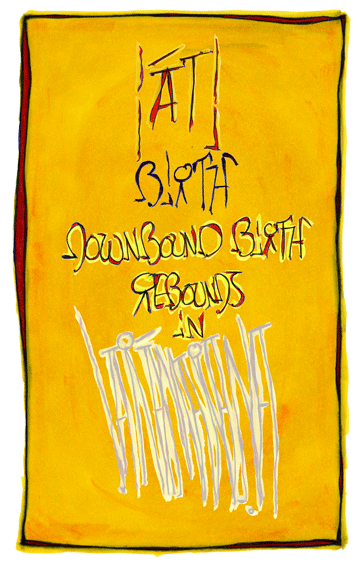 ÁT
BIRTH
DOWNBOUND BIRTH
REBOUNDS
IN